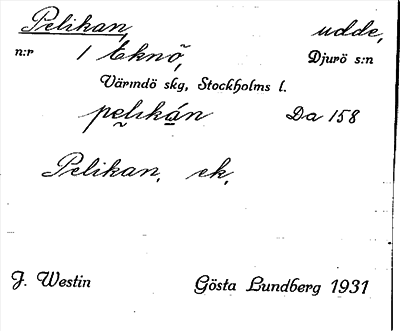 Pelikan, udde,
n:r 1 Eknö, Djurö s:n
Värmdö skg, Stockholms l.
pelikán Da 158
Pelikan, ek,
J. Westin Gösta Lundberg 1931